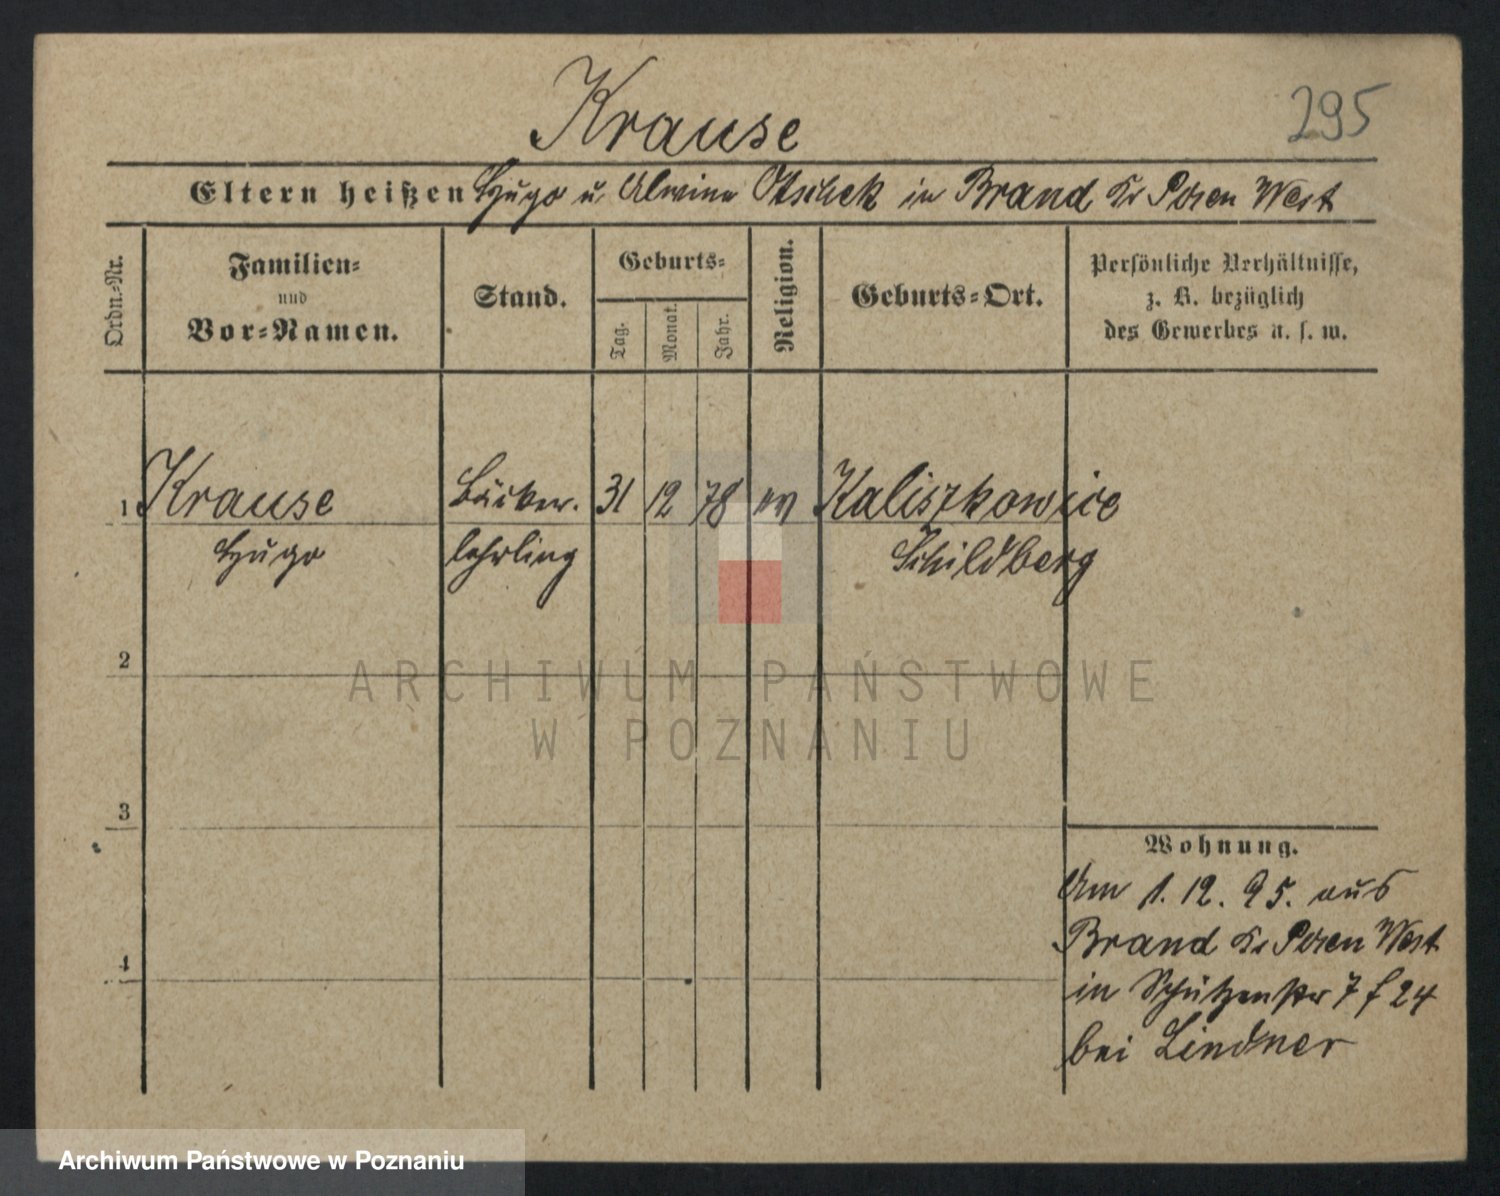 Krause
295
Eltern heißen Hugo u. Alwine Otschek in Brand Kr Posen West
Ordn.-Nr.
Familien-
und
Vor-Namen.
Stand.
Geburts-
Tag.
Monat.
Jahr.
Religion.
Geburts-Ort.
Persönliche Verhältnisse,
z. B. bezüglich
des Gewerbes u. s. w.
1 Krause Bäcker. 31 12 78 ev Kaliszkowice
Hugo lehrling Schildberg
2
3
4
Wohnung.
Am 1. 12. 95. aus
Brand Kr Posen West
in Schützenstr 7 f 24
bei Lindner
ARCHIWUM PAŃSTWOWE
W POZNANIU
Archiwum Państwowe w Poznaniu